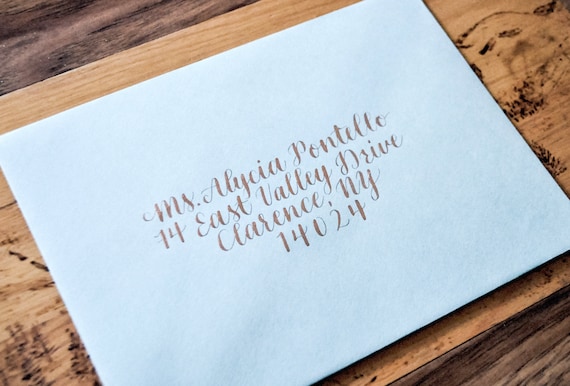 Ms. Alycia Pontello
14 East Valley Drive
Clarence, NY
14024